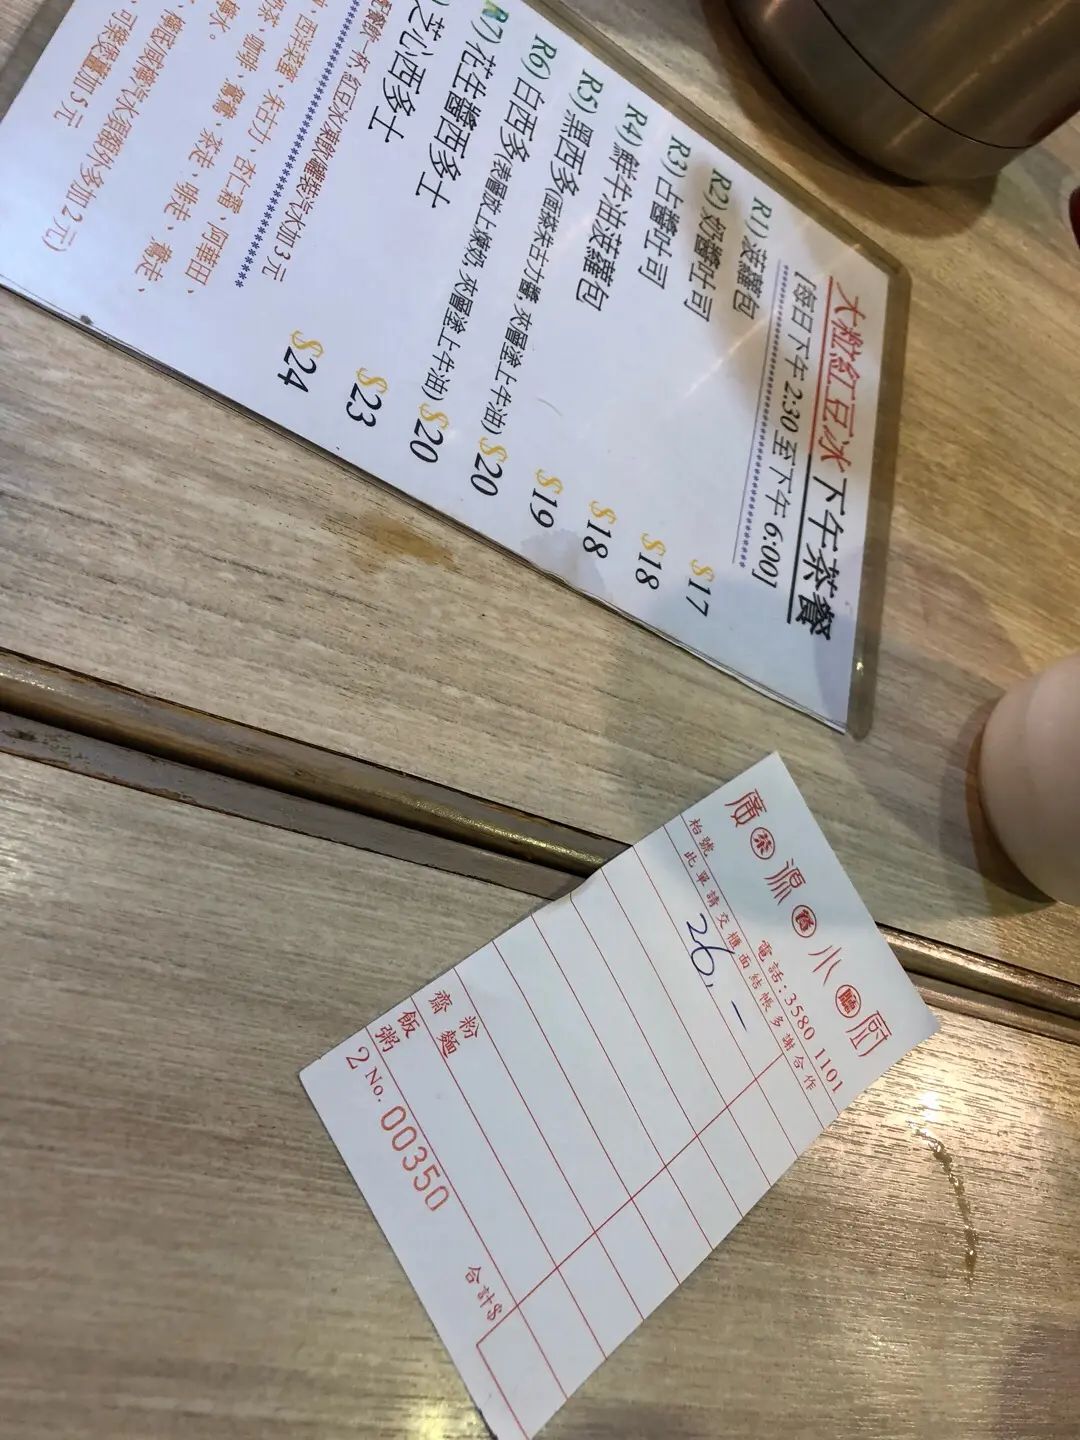 大粒紅豆冰下午茶餐
[每日下午 2:30 至下午 6:00]
R1) 菠蘿包 $17
R2) 奶醬吐司 $18
R3) 占醬吐司 $18
R4) 鮮牛油菠蘿包 $19
R5) 黑西多(面搽朱古力醬, 夾層塗上牛油) $20
R6) 白西多(表層飲上煉奶, 夾層塗上牛油) $20
R7) 花生醬西多士 $23
芝心西多士 $24
一杯, 紅豆冰/凍飲/罐裝汽水加3元
朱古力、杏仁霜、阿華田、
咖啡、齋啡、茶走、啡走、齋走、
汽水須額外多加2元)
加5元
廣源小厨
茶餐廳
電話:3580 1101
枱號 此單請交櫃面結帳多謝合作
26.-
粉麵
齋
飯
粥
2 No. 00350
合計$